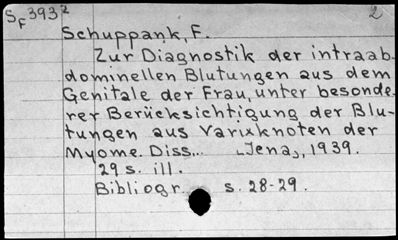 SF 393² 2
Schuppank, F.
Zur Diagnostik der intraab-
dominellen Blutungen aus dem
Genitale der Frau, unter besonde-
rer Berücksichtigung der Blu-
tungen aus Varixknoten der
Myome. Diss... [Jena], 1939.
29 s. ill.
Bibliogr. s. 28-29.